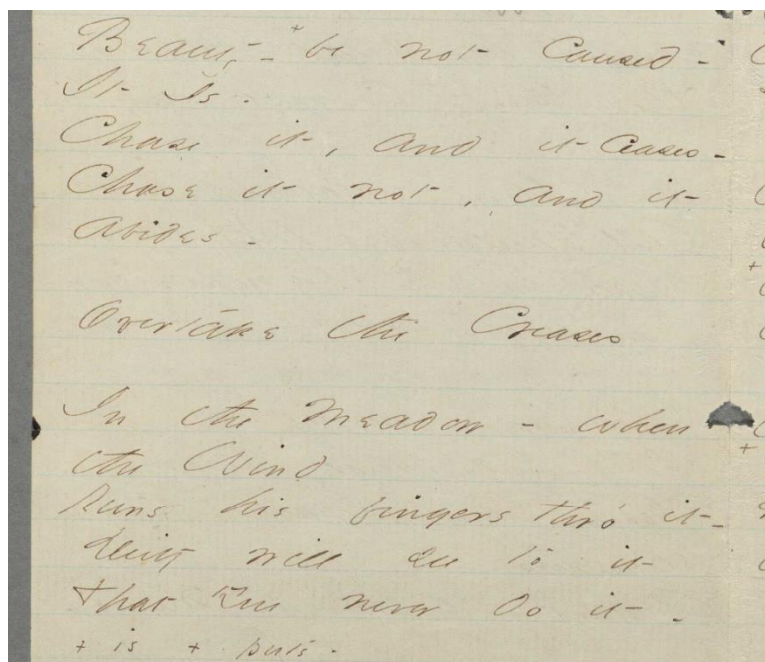 Beauty - + be not caused -
It Is -
Chase it, and it ceases -
Chase it not, and it
abides -
Overtake the Creases
In the Meadow - when
the Wind
Runs his fingers thro' it -
Deity will see to it
That You never do it -
+ is + puts -